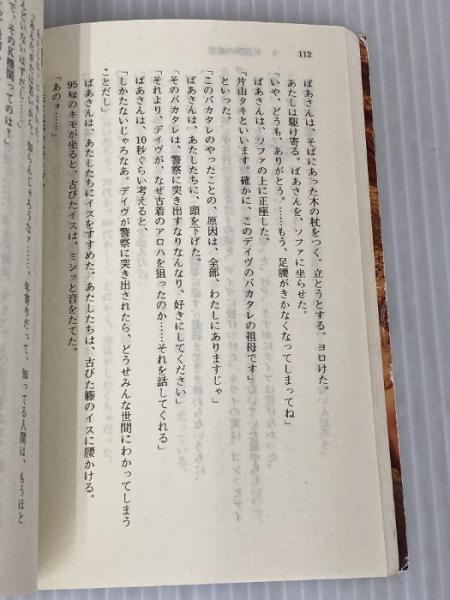 112
ばあさんは、そばにあった木の杖をつく。立とうとする。ヨロけた。
あたしは駆け寄る。ばあさんを、ソファに坐らせた。
「いや、どうも、ありがとう。……もう、足腰がきかなくなってしまってね」
ばあさんは、ソファの上に正座した。
「片山タキといいます。確かに、このデイヴのバカタレの祖母です」
といった。
「このバカタレのやったことの、原因は、全部、わたしにありますじゃ」
ばあさんは、あたしたちに、頭を下げた。
「そのバカタレは、警察に突き出すなりなんなり、好きにしてください」
「それより、デイヴが、なぜ古着のアロハを狙ったのか……それを話してくれる」
ばあさんは、10秒ぐらい考えると、
「しかたないじゃろなあ。デイヴが警察に突き出されたら、どうせみんな世間にわかってしまう
ことだし」
ばあさんは、あたしたちにイスをすすめた。あたしたちは、古びた籐のイスに腰かける。
95kgのキモが坐ると、古びたイスは、ミシッと音をたてた。
「あのォ……」
年寄りだって、知ってる人間は、もうほと
んどいないはずだし」
で、その〆機関ってのは？」